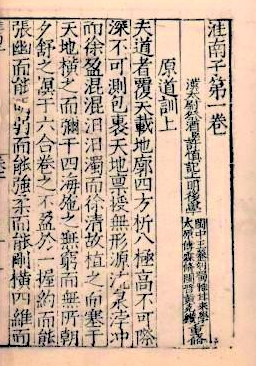 淮南子第一卷
漢太尉祭酒許慎記上
重雕
原道訓上
夫道者覆天載地廓四方析八極高不可際
深不可測包裹天地稟授無形源流泉浡冲
而徐盈混混汩汩濁而徐清故植之而塞于
天地橫之而彌于四海施之無窮而無所朝
夕舒之㝠于六合卷之不盈於一握約而能
張幽而能明弱而能強柔而能剛橫四維而